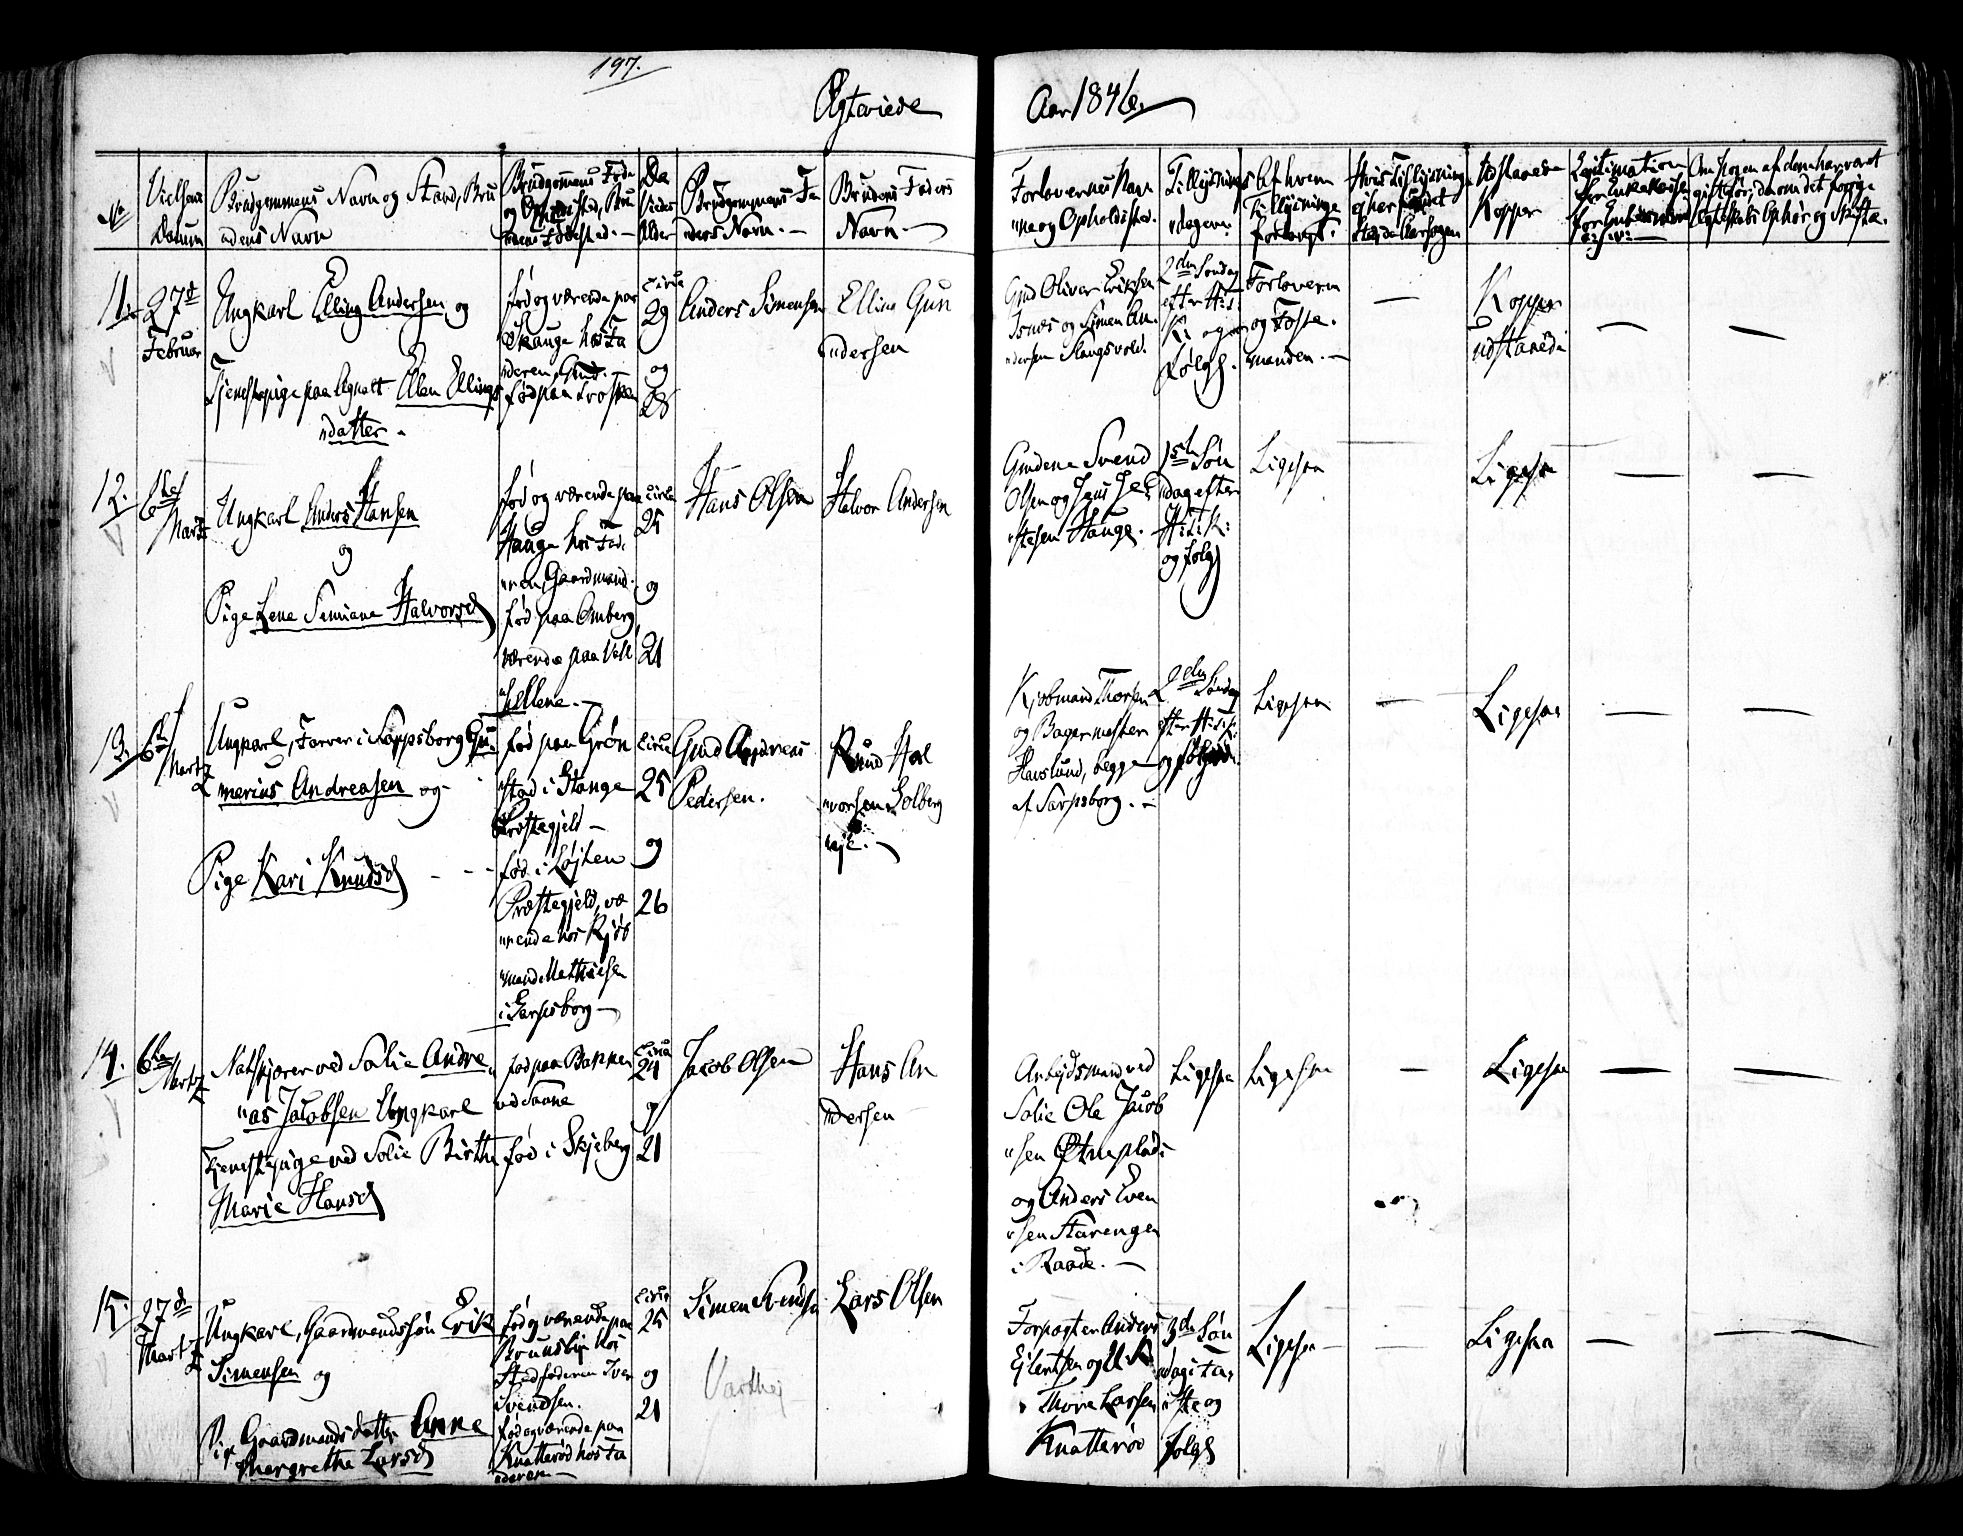 197.
Ægteviede
Aar 1846.
No
Vielsens Datum
Brudgommens Navn og Stand, Bru
"dens Navn
Brudgommens Føde
og Opholdssted, Bru
"dens Fødested. —
Begges Alder
Brudgommens Fa
"ders Navn. —
Brudens Faders
Navn. —
Forlovernes Nav
"ne og Opholdssted.
Tillysnings
"dagen.
Af hvem
Tillysninge
forlangt.
Hvis Tillysning
ei her
Udstandne
Kopper
Legitimation
for Enkemænd
Om Nogen af dem har været
gift før, da om det forrige
Ægteskabs Ophør og Skifte.
11.
27d
Februar
Ungkarl Elling Andersen og
Tjenestepige paa Agnalt Ellen Ellings
"datter.
fød og værende paa
Skauge hos Fa
"deren, Gmd. —
fød paa Trospen
circa
29
og
28
Anders Simensen
Elling Gun
"dersen
Gmd Oliver Eriksen
Isnæs og Simen An.
"dersen Slangsvold.
2den Søndag
efter H:3:
K: og
følg.
Forloverne
og Fæste.
"manden. —
—
Kopper
udstaaede
—
—
12.
6te
Martz
Ungkarl Anders Hansen
og
Pige Lene Simiane Halvorsd
fød og værende paa
Hauge hos Fad.
"ren, Gaardmand.
fød paa Omberg,
værende paa Vall
"hellene. —
circa
25
og
21
Hans Olsen
Halvor Andersen
Gmdene Svend
Olsen og Jens Jel
"stesen Hauge.
1ste Søn
"dag efter
H: 3: K:
og følg
Ligesaa
Ligesaa
—
—
13.
6te
Martz
Ungkarl, Farver i Sarpsborg Gu
marius Andreasen og
Pige Kari Knudsd
fød paa Grøn
"stad i Stange
Præstegjeld —
fød i Løjten
Præstegjeld, væ
"rende hos Kjøb
"mand Mathiesen
i Sarpsborg —
circa
25
og
26
Gmd Andreas
Pedersen.
Knud Hal
"vorsen Solberg
"eje. —
Kjøbmand Thorsen
og Bagermester
Havslund, begge
af Sarpsborg. —
2den Søndag
efter H: 3: K:
og følgd.
Ligesaa
—
Ligesaa
—
—
14.
6te
Martz
Natskjærer ved Solie Andre
"as Jacobsen Ungkarl
Tjenestepige ved Solie Birthe
Marie Hansd
fød paa Bakken
ved Saane
fød i Skjeberg
circa
24
og
21
Jacob Olsen
Hans An
"dersen
Arbejdsmand ved
Solie Ole Jacob
"sen
og Anders Even
"sen Starengen
i Raade. —
Ligesaa
Ligesaa
—
Ligesaa
—
—
15.
27d
Martz
Ungkarl, Gaardmandssøn Erik
Simensen og
Pige Gaardmandsdatter Anne
Margrethe Larsd
fød og værende paa
Brunsby hos
Stedfaderen Iver
Svendsen.
fød og værende paa
Knatterød hos Fa
"deren —
circa
25
og
21
Simen Svendsen
Lars Olsen
Vartheg
Forpagter Anders
Eilertsen og
Thore Larsen
Knatterød
3die Søn
"dag i Fa,
"ste og
følgd
Ligesaa
—
Ligesaa
—
—